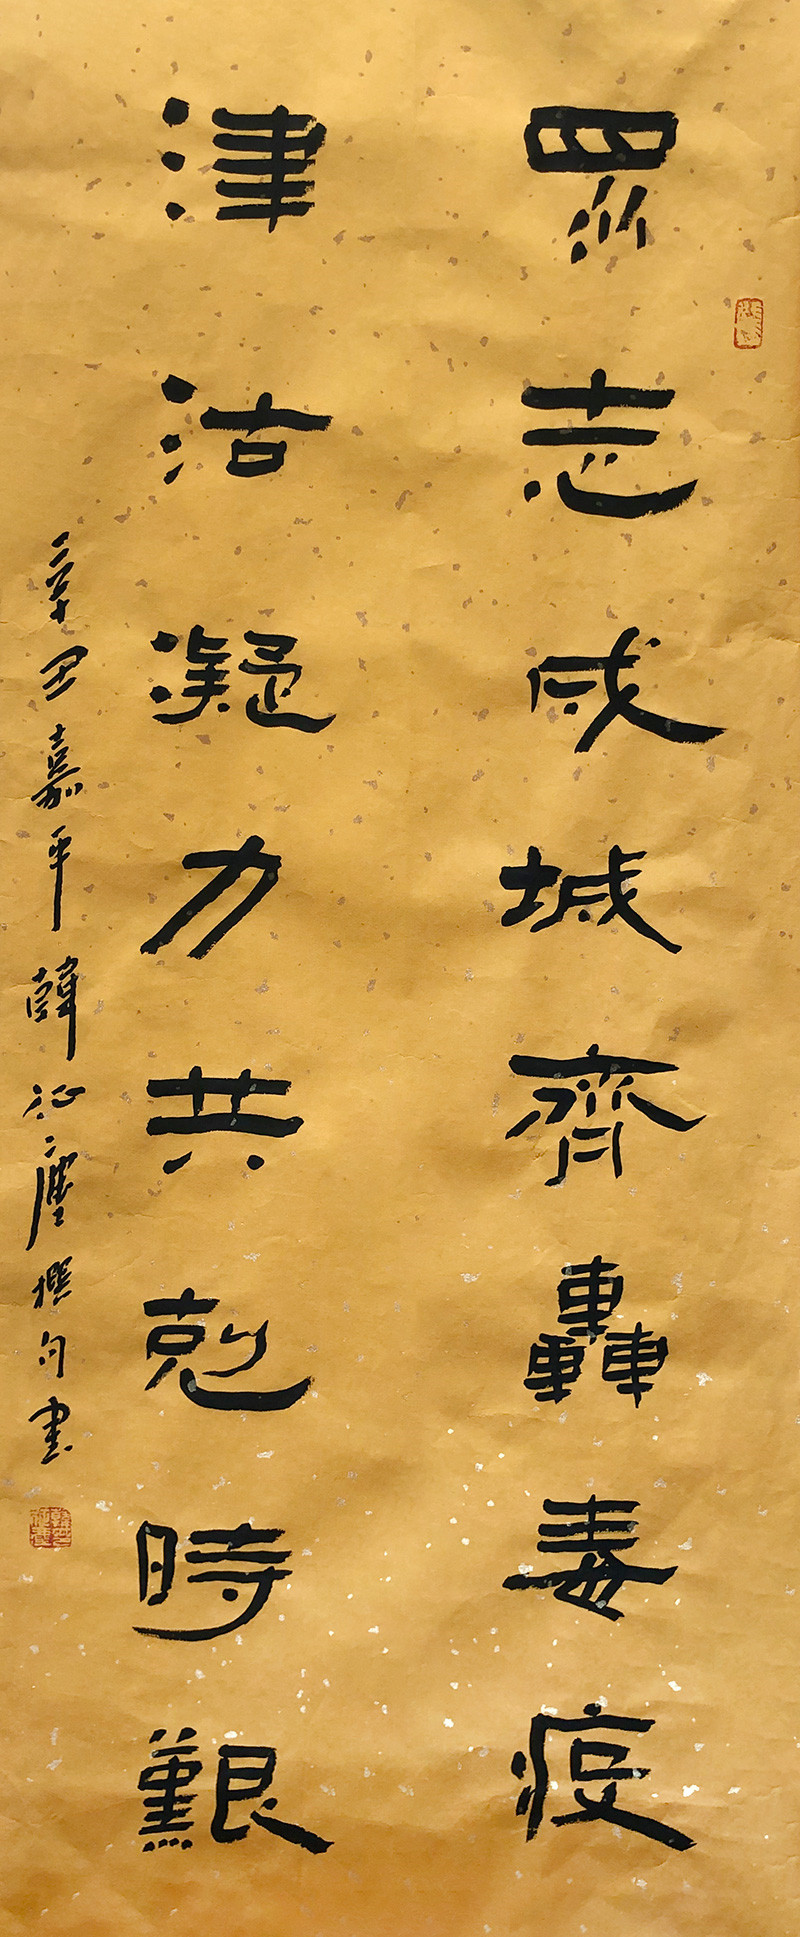 眾志成城齊轟毒疫
津沽凝力共剋時艱
辛丑嘉平韓征塵撰句書